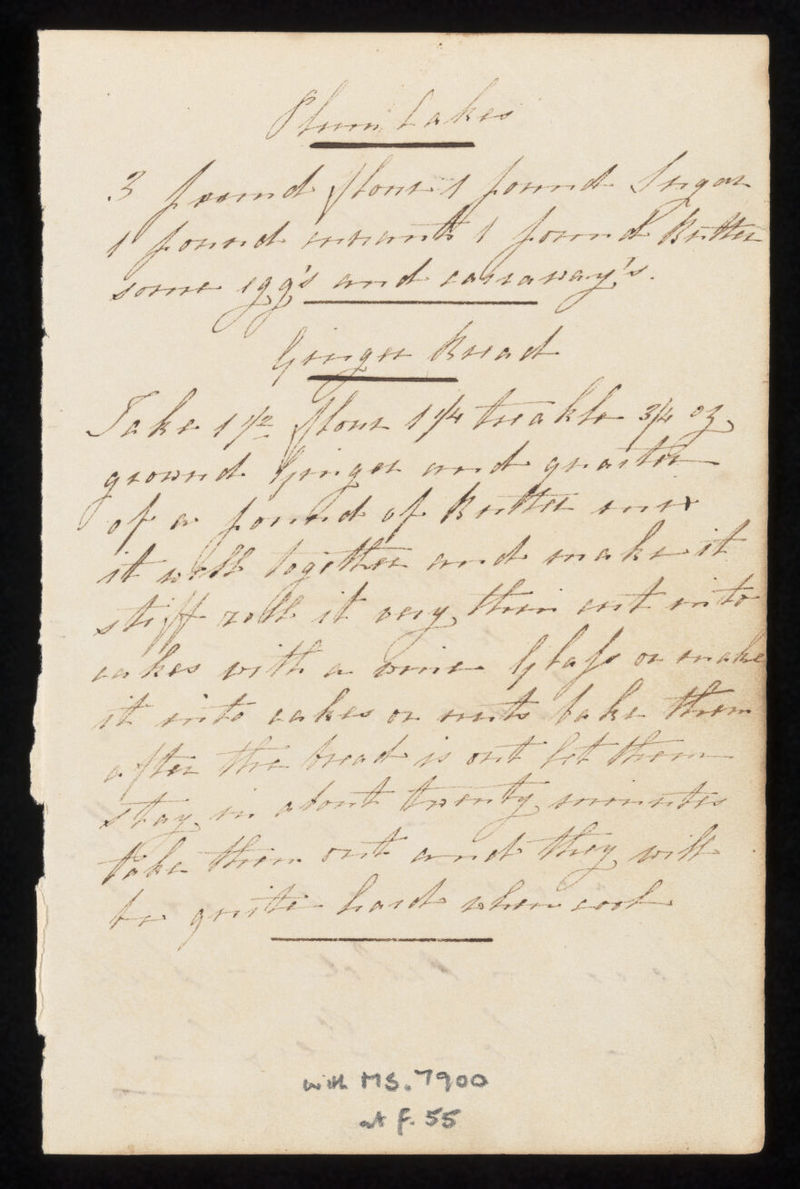 Plum Cakes
3 pound flour 1 pound Sugar
1 pound currants 1 pound Butter
some egg's and carraway's.
Ginger Bread
Take 1 1/2 flour 1 1/4 treakle 3/4 oz
ground Ginger and quarter
of a pound of Butter mix
it well together and make it
stiff roll it very thin cut into
cakes with a wine Glaſs or make
it into cakes or nuts bake them
after the bread is out let them
stay in about twenty minutes
take them out and they will
be quite hard when cool
with MS. 7900
at f. 55